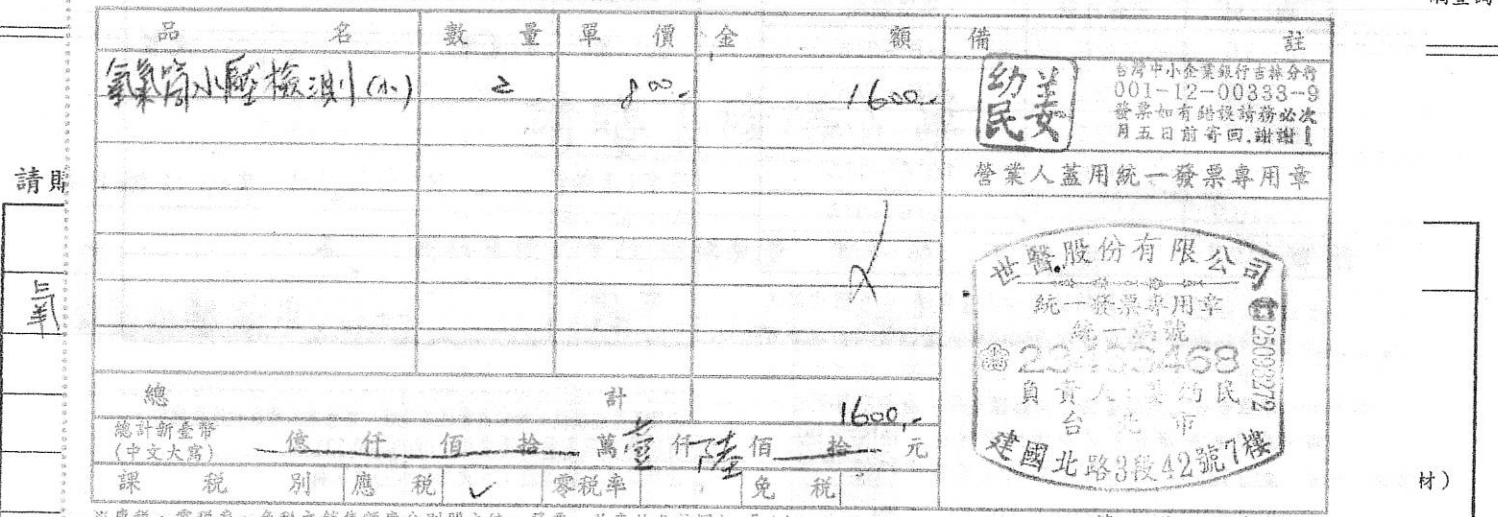 品名 數量 單價 金額 備註
氧氣筒水壓檢測(小) 2 800.- 1600.-
姜幼民
台灣中小企業銀行吉林分行
001-12-00333-9
發票如有錯誤請務必次
月五日前寄回.謝謝!
營業人蓋用統一發票專用章
世醫股份有限公司
統一發票專用章
統一編號
25093272
負責人:姜幼民
台北市
建國北路3段42號7樓
總計 1600.-
總計新臺幣
(中文大寫) 億仟佰拾萬壹仟陸佰拾元
課稅別 應稅 ✓ 零稅率 免稅
請購
氧
材)